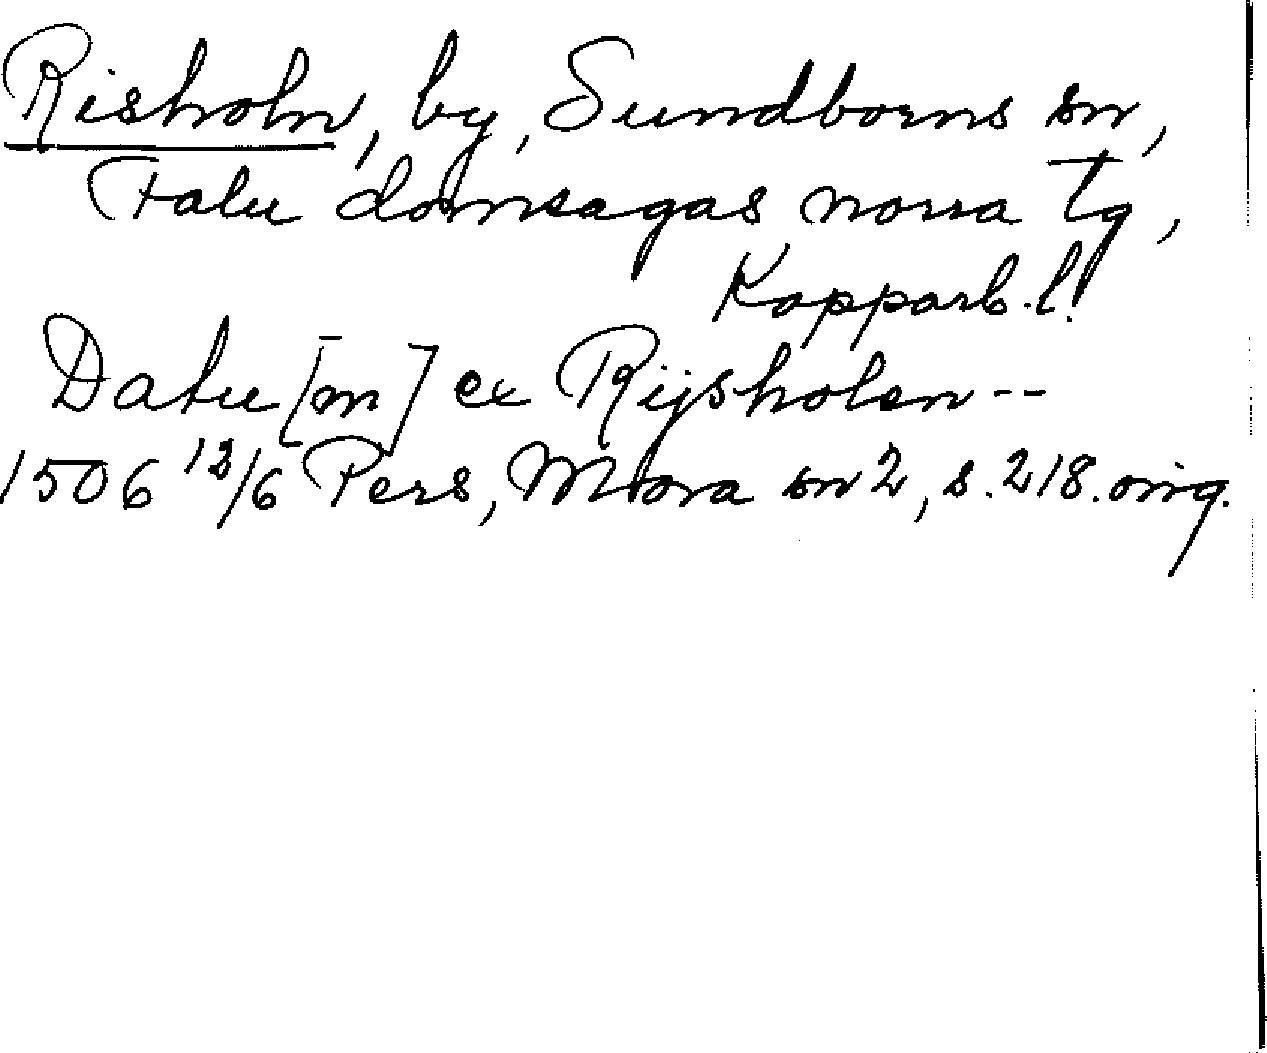 Risholn, by, Sundborns sn,
Falu domsagas norra tg,
Kopparb. l.
Datu[m] ex Rijsholen--
1506 12/6 Pers, Mora sn 2, s. 218. orig.